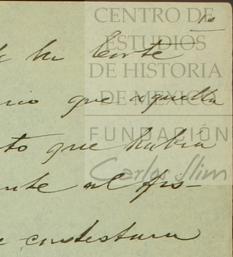 CENTRO DE
ESTUDIOS
DE HISTORIA
DE MEXICO
FUNDACIÓN
Carlos Slim
10
la Corte
que aquella
to que habia
ente al fis-
contestara